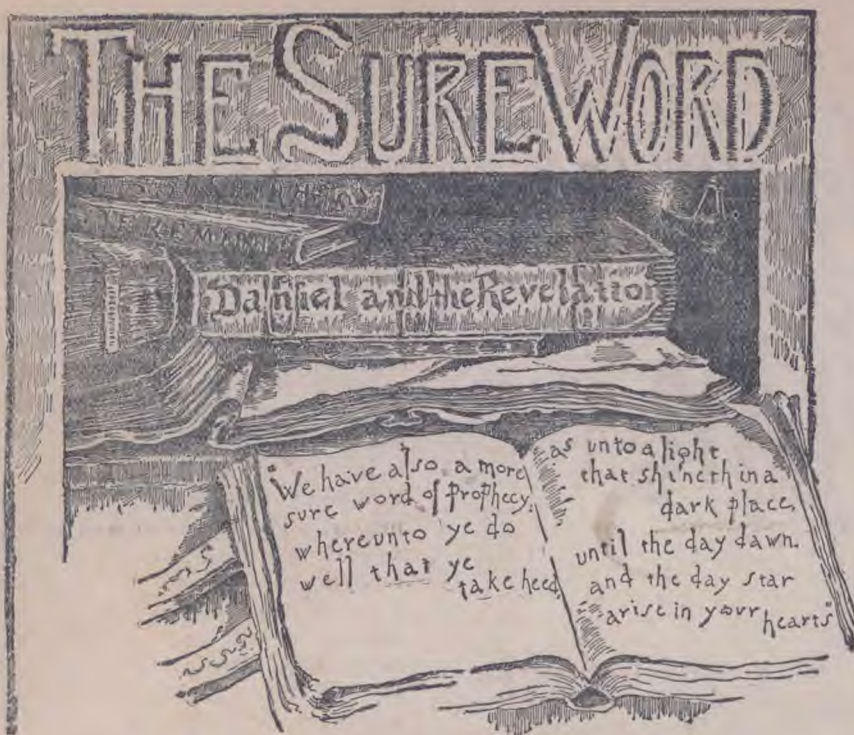 THE SURE WORD
Daniel and the Revelation
"We have also a more
sure word of Prophecy,
whereunto ye do
well that ye
take heed
as unto a light
that shineth in a
dark place,
until the day dawn.
and the day star
arise in your hearts"